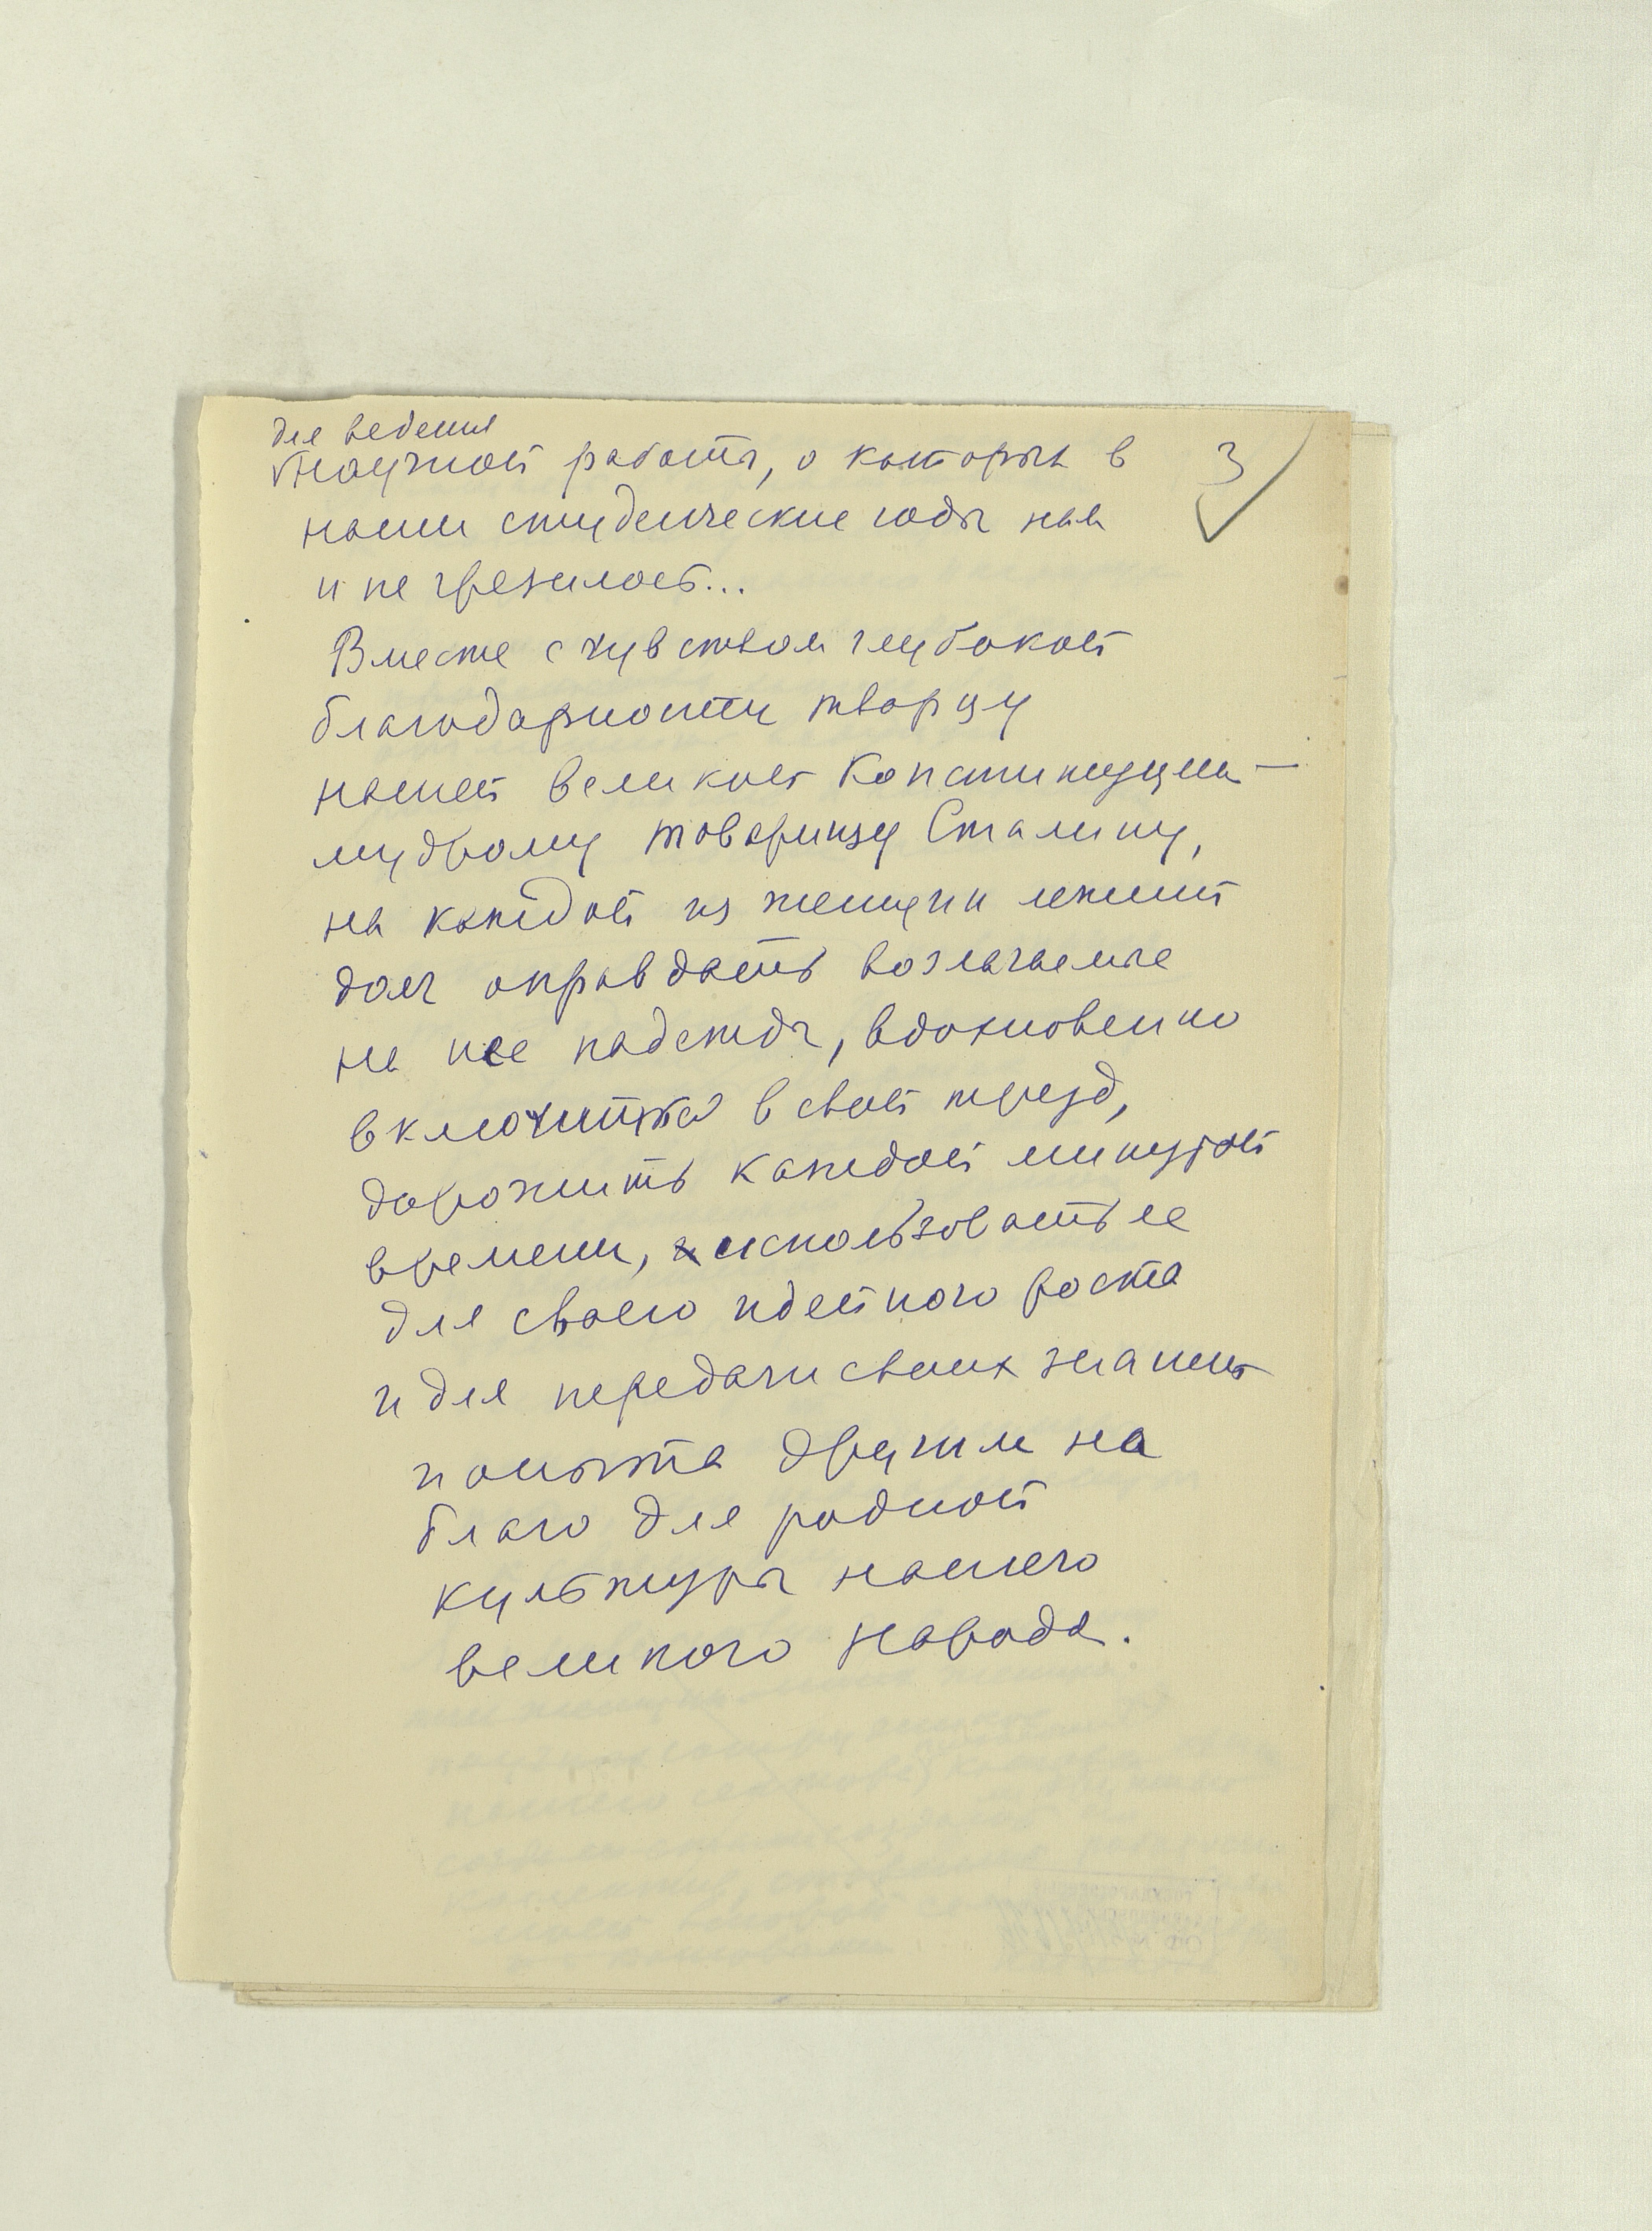 для ведения
научной работы, о которых в
3
наши студенческие годы нам
и не грезилось...
Вместе с чувством глубокой
благодарности творцу
нашей великой Конституции —
мудрому товарищу Сталину,
на каждой из женщин лежит
долг оправдать возлагаемые
на нее надежды, вдохновенно
включиться в свой труд,
дорожить каждой минутой
времени, использовать ее
для своего идейного роста
и для передачи своих знаний
и опыта другим на
благо для родной
культуры нашего
великого народа.